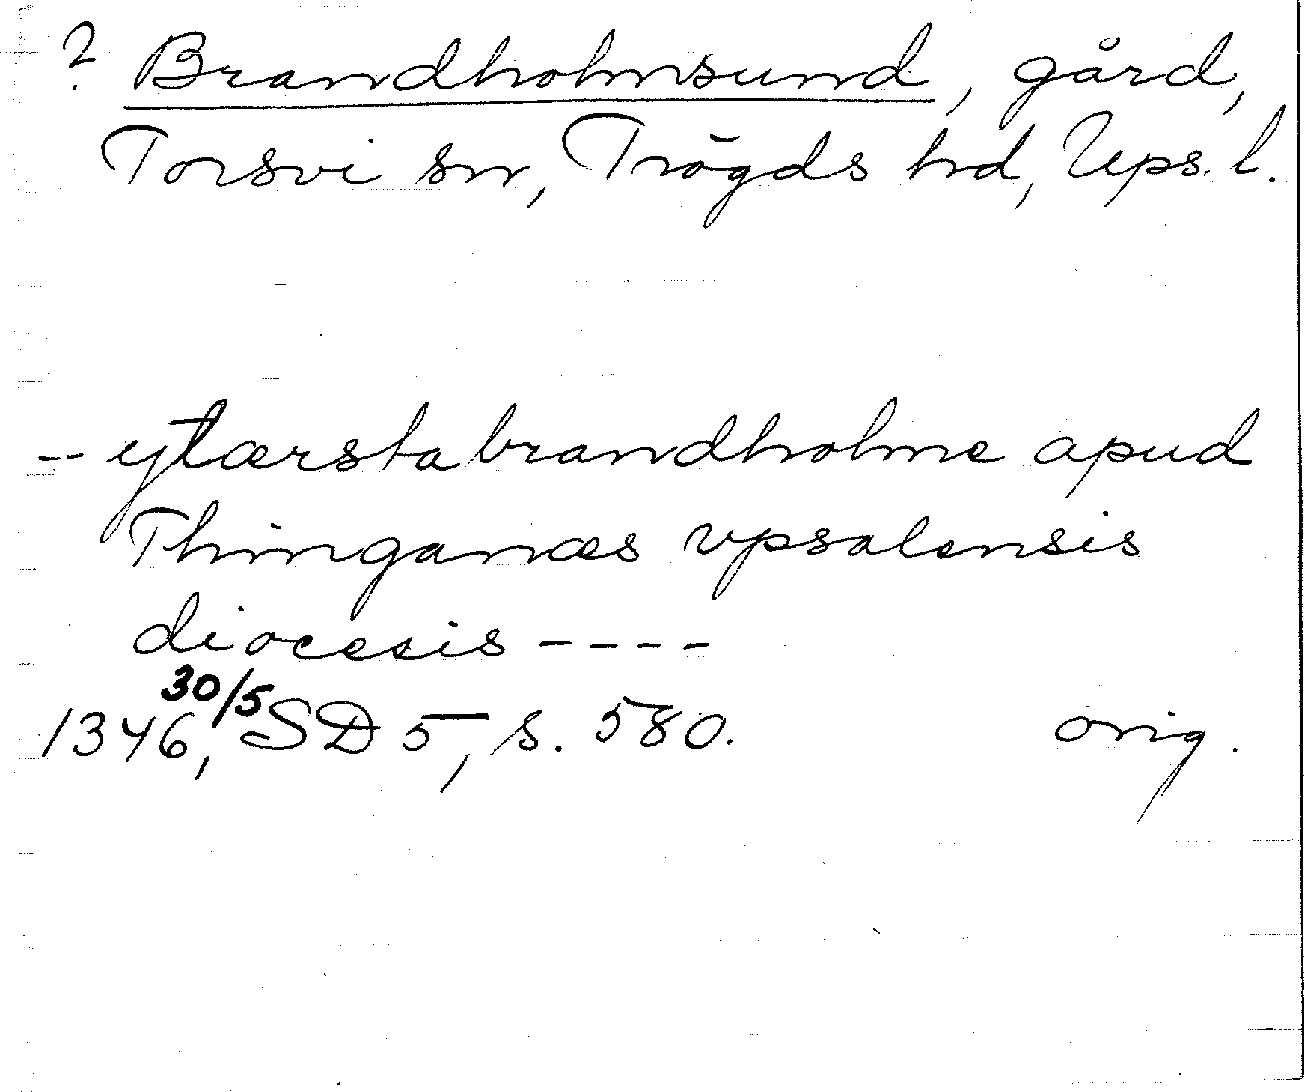 ? Brandholmsund, gård,
Torsvi sn, Trögds hd, Ups. l.
-- ytærsta brandholme apud
Thinganæs vpsalensis
diocesis ----
1346, 30/5 SD 5, s. 580. orig.